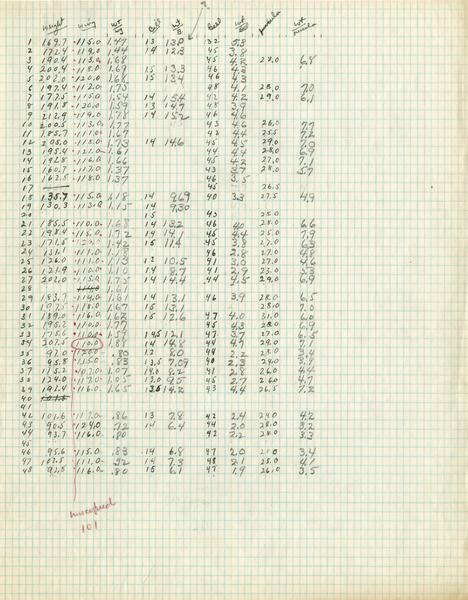 Weight Wing Wt wg Bill Wt B Tail Wt
1 169.7 115.0 1.47 13 13.0 32 3.8
2 172.4 119.0 1.44 14 12.3 45 3.8
3 190.4 115.0 1.68 45 4.2 28.0 6.8
4 200.4 118.0 1.69 15 13.3 46 4.3
5 202.0 120.0 1.68 15 13.4 46 4.3
6 197.4 112.0 1.73 48 4.1 28.0 7.0
7 177.5 115.0 1.54 14 15.4 42 4.2 29.0 6.1
8 191.8 120.0 1.59 13 14.7 48 3.9
9 212.9 119.0 1.78 14 15.2 46 4.6
10 200.5 113.0 1.77 43 4.6 26.0 7.7
11 185.7 111.0 1.67 42 4.4 25.5 7.2
12 205.0 118.0 1.73 14 14.6 45 4.5 29.0 7.0
13 195.4 121.0 1.61 44 4.4 28.0 6.9
14 192.8 116.0 1.66 45 4.2 27.0 7.1
15 160.7 117.0 1.37 43 3.7 28.0 5.7
16 162.5 118.0 1.37 46 3.5
17 45 26.5
18 135.7 115.0 1.18 14 9.69 40 3.3 27.5 4.9
19 130.3 113.0 1.15 14 9.30
20 15 43 28.0
21 185.5 110.0 1.68 14 13.2 46 40 28.0 6.6
22 198.4 115.0 1.72 14 14.1 45 4.4 25.0 7.9
23 171.5 120.0 1.42 15 11.4 45 3.8 27.0 6.3
24 131.1 111.0 1.18 46 2.8 27.0 4.8
25 126.0 111.0 1.13 12 10.5 41 3.0 27.0 4.6
26 121.9 110.0 1.10 14 8.7 41 2.9 23.0 5.3
27 202.0 115.0 1.75 14 14.4 44 4.5 29.0 6.9
28 1.61
29 183.7 114.0 1.61 14 13.1 46 3.9 28.0 6.5
30 197.5 118.0 1.67 15 13.1 28.0 7.0
31 189.0 116.0 1.62 15 12.6 47 4.0 31.0 6.0
32 195.2 110.0 1.77 45 4.3 28.0 6.9
33 175.6 110.0 1.59 14.5 12.1 47 3.7 27.0 6.5
34 207.5 110.0 1.88 14 14.8 44 4.7 29.0 7.1
35 97.0 120.0 .80 12 8.0 44 2.2 28.0 3.4
36 95.8 115.0 .83 13.5 7.09 40 2.3 24.0 3.9
37 115.2 107.0 1.07 14.0 8.2 41 2.8 26.0 4.4
38 124.0 117.0 1.05 13.0 9.5 45 2.7 26.0 4.7
39 191.4 116.0 1.65 13.5 14.2 43 4.4 26.5 7.2
40
41
42 101.6 117.0 .86 13 7.8 42 2.4 24.0 4.2
43 90.5 124.0 .72 14 6.4 44 2.0 28.0 3.2
44 93.7 116.0 .80 42 2.2 28.0 3.3
45
46 95.6 115.0 .83 14 6.8 47 2.0 27.0 3.4
47 102.5 111.0 .92 14 7.3 48 2.1 25.0 4.1
48 92.5 116.0 .80 15 6.1 47 1.9 26.0 3.5
miscopied
101